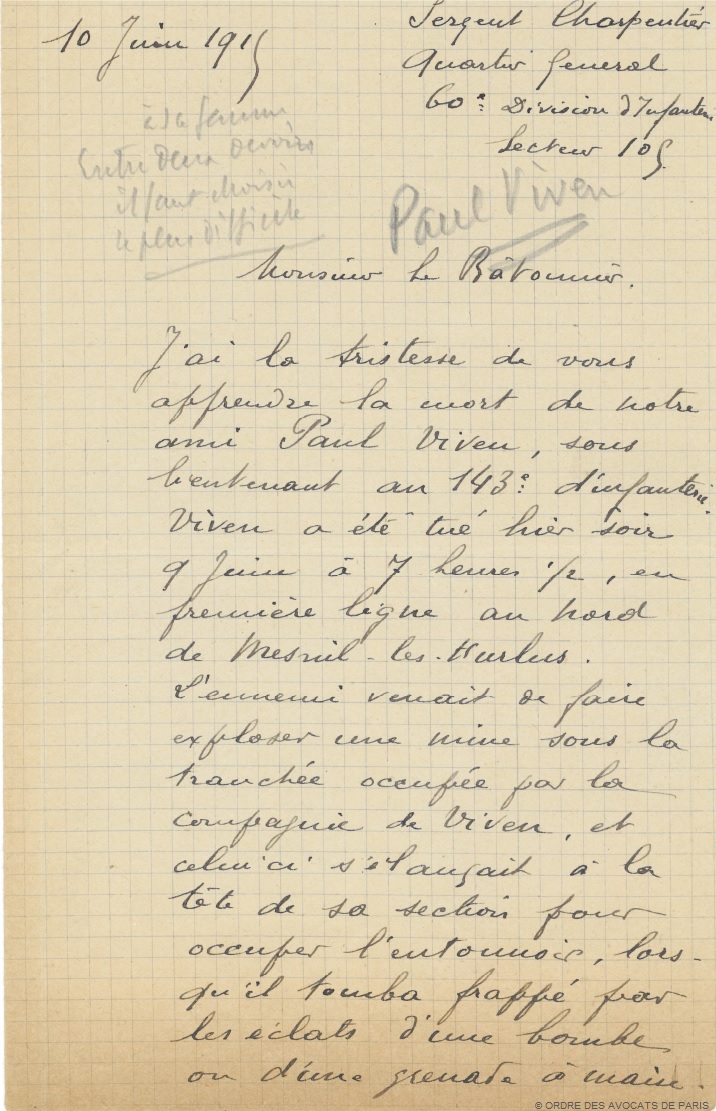 10 Juin 1915
Sergent Charpentier
Quartier General
60e Division d'Infanterie
Secteur 105
à sa femme
Entre deux devoirs
il faut choisir
le plus difficile
Paul Viven
Monsieur le Bâtonnier.
J'ai la tristesse de vous
apprendre la mort de notre
ami Paul Viven, sous
lieutenant au 143e d'infanterie.
Viven a été tué hier soir
9 Juin à 7 heures 1/2, en
première ligne au nord
de Mesnil-les-Hurlus.
L'ennemi venait de faire
exploser une mine sous la
tranchée occupée par la
compagnie de Viven, et
celui ci s'élançait à la
tête de sa section pour
occuper l'entonnoir, lors-
qu'il tomba frappé par
les éclats d'une bombe
ou d'une grenade à main.
© ORDRE DES AVOCATS DE PARIS